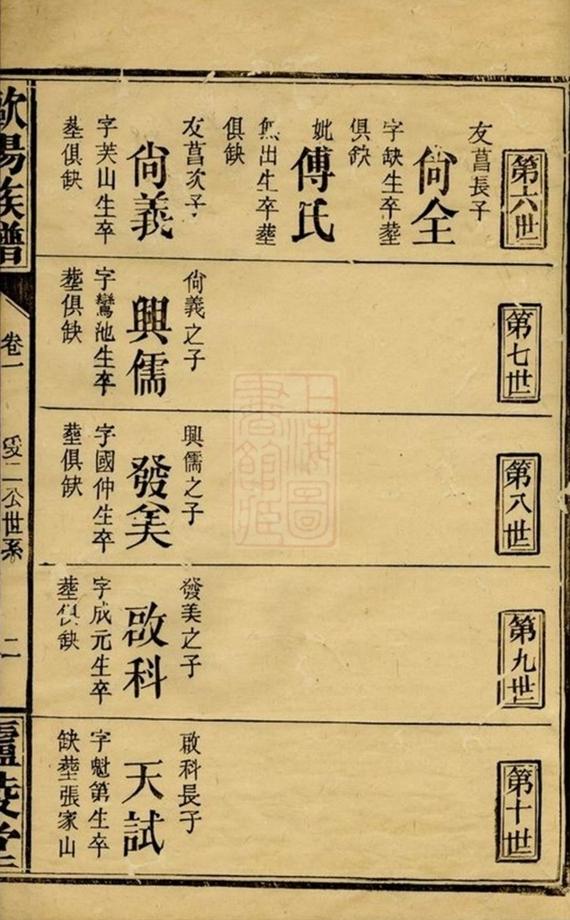 第六世
友菖長子
尙全
字缺生卒塟
俱缺
妣
傅氏
無出生卒塟
俱缺
友菖次子
尙義
字芙山生卒
塟俱缺
第七世
尙義之子
興儒
字鸞池生卒
塟俱缺
第八世
興儒之子
發美
字國仲生卒
塟俱缺
第九世
發美之子
啟科
字成元生卒
塟俱缺
第十世
啟科長子
天試
字魁第生卒
缺塟張家山
歐陽族譜
卷一
受二公世系
二
廬陵堂
上海圖書館藏